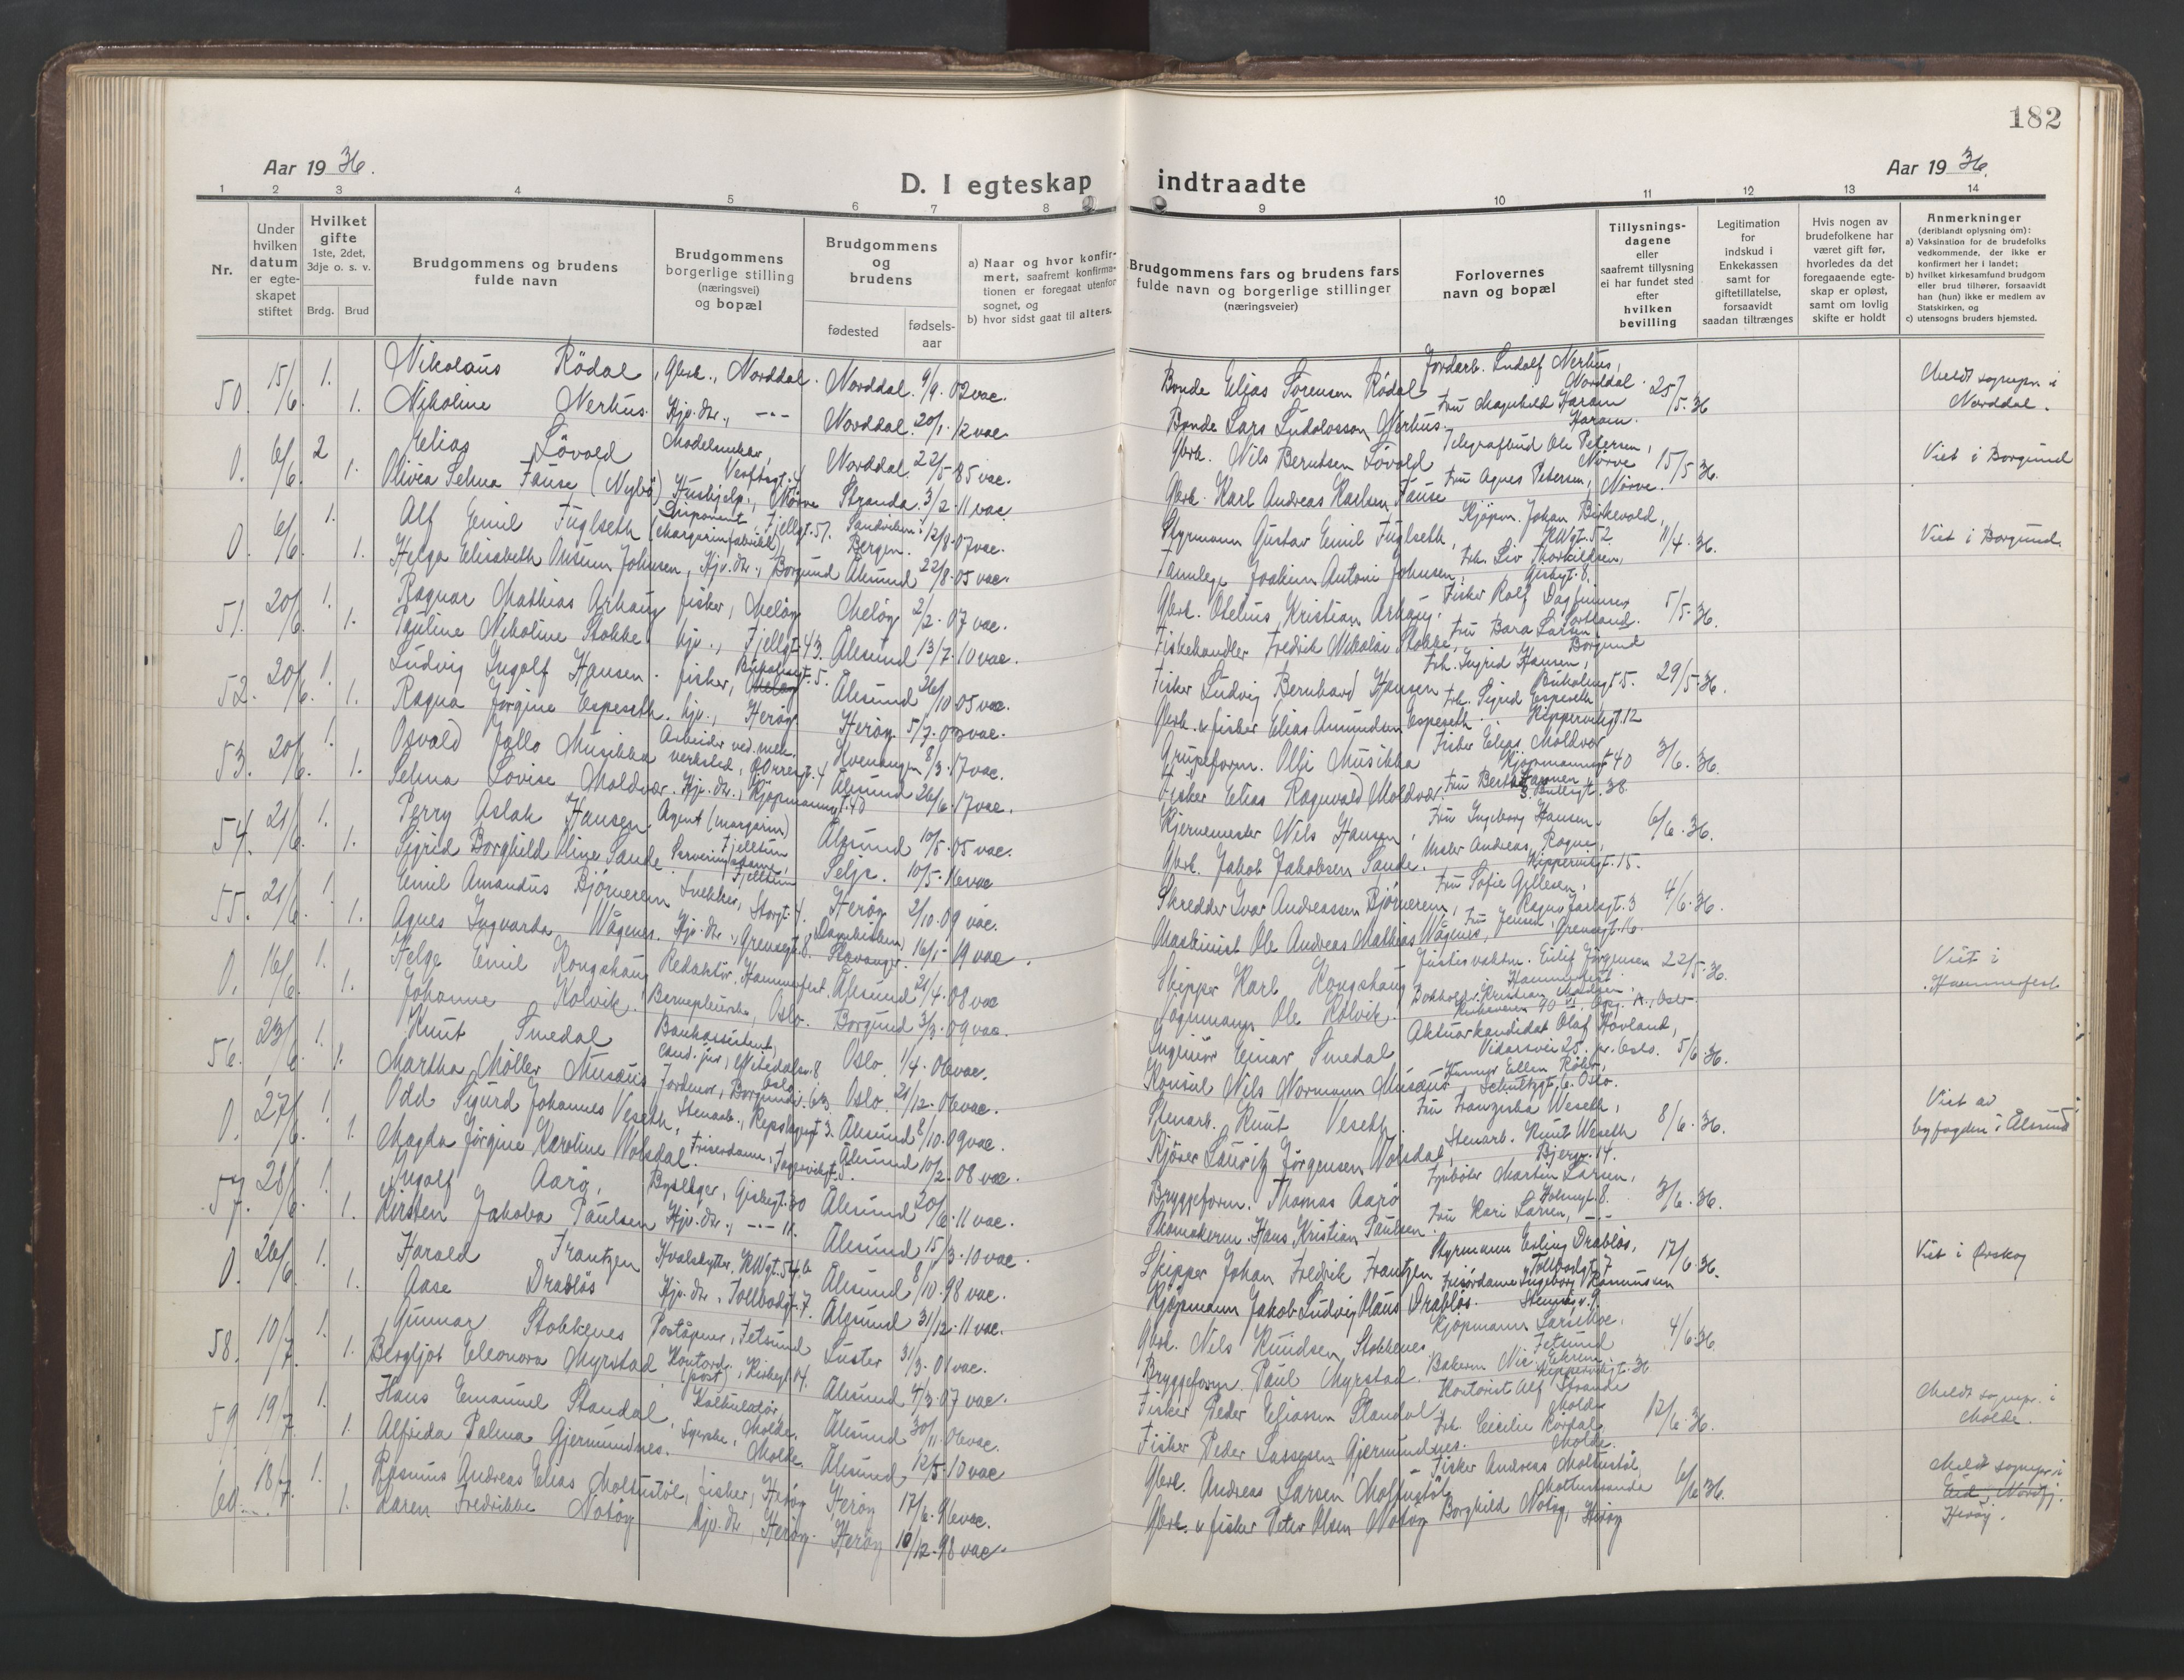 182
Aar 19 36.
D. I egteskap indtraadte
Aar 19 36.
1 2 3 4 5 6 7 8 9 10 11 12 13 14
Nr.
Under hvilken datum er egteskapet stiftet
Hvilket gifte 1ste, 2det, 3dje o. s. v.
Brdg. Brud
Brudgommens og brudens fulde navn
Brudgommens borgerlige stilling (næringsvei) og bopæl
Brudgommens og brudens
fødested
fødsels-aar
a) Naar og hvor konfirmert, saafremt konfirmationen er foregaat utenfor sognet, og
b) hvor sidst gaat til alters.
Brudgommens fars og brudens fars fulde navn og borgerlige stillinger (næringsveier)
Forlovernes navn og bopæl
Tillysningsdagene eller saafremt tillysning ei har fundet sted efter hvilken bevilling
Legitimation for indskud i Enkekassen samt for giftetillatelse, forsaavidt saadan tiltrænges
Hvis nogen av brudefolkene har været gift før, hvorledes da det foregaaende egteskap er opløst, samt om lovlig skifte er holdt
Anmerkninger (deriblandt oplysning om):
a) Vaksination for de brudefolks vedkommende, der ikke er konfirmert her i landet;
b) hvilket kirkesamfund brudgom eller brud tilhører, forsaavidt han (hun) ikke er medlem av Statskirken, og
c) utensogns bruders hjemsted.
50. 15/6. 1. Nikolaus Rödal, Gbrk., Norddal. Norddal. 9/9. 02 vac. Bonde Elias Sörensen Rödal Jordarb. Ludolf Nerhus, Norddal. 25/5. 36 Meldt sognepr. i Norddal.
1. Nikoline Nerhus. Hjv. dtr., -"- Norddal. 20/1. 12 vac. Bonde Lars Ludolosson Nerhus. Fru Magnhild Haram Haram.
0. 6/6. 2 Elias Lövold Modelsnekker, Verftsgt. 4 Norddal. 22/5. 85 vac. Gbrk. Nils Berntsen Lövold Telegrafbud Ole Petersen, Nörve 15/5. 36. Viet i Borgund
1. Olivea Selma Fause (Nybö) Hushjelp., Nörve Stranda. 3/2. 11 vac. Gbrk. Karl Andreas Karlsen Fause Fru Agnes Petersen, Nörve.
0. 6/6. 1. Alf Emil Fuglseth (margarinfabrikk), Fjellgt. 51. Sandviken, Bergen. 12/8. 07 vac. Styrmann Gustav Emil Fuglseth, Kjöpm. Johan Birkevold, KWgt. 52 11/4. 36. Viet i Borgund.
1. Helga Elisabeth Johnsen, Hjv. dtr., Borgund Ålesund 22/8. 05 vac. Tannlege Joakim Antoni Johnsen, Frk. Liv Thorkildsen, gt. 8.
51. 20/6. 1. Ragnar Mathias Arhaug fisker, Melöy Melöy 2/2. 07 vac. Gbrk. Otelius Kristian Arhaug. Fisker Rolf Dagfinnsen 5/5. 36.
1. Pauline Nikoline Stokke. hjv., Fjellgt. 43. Ålesund 13/7. 10 vac. Fiskehandler Fredrik Nikolai Stokke, Fru Bara Larsen, Borgund
52. 20/6. 1. Ludvig Ingolf Hansen. fisker, Buholmgt. 5. Ålesund 26/10 05 vac. Fisker Ludvig Bernhard Hansen Frk. Ingrid Hansen, Buholmgt. 5. 29/5. 36.
1. Ragna Jörgine Espeseth. hjv., Heröy Heröy. 5/7. 03 vac. Gbrk. & fisker Elias Amundsen Espeseth. Frk. Sigrid Espeseth Kippervikgt. 12
53. 20/6. 1. Osvald Jallo Musikka Arbeider ved mek. verksted, Kvenangen 8/3. 17 vac. Grubeform. Olli Musikka Fisker Elias Moldvær Kjöpmannsgt 40 3/6. 36.
1. Selma Lovise Moldvær. Hjv. dtr., Kjöpmannsgt. 40 Ålesund 26/6. 17 vac. Fisker Elias Ragnvald Moldvær.
54. 21/6. 1. Perry Aslak Hansen. Agent (margarin) Fjelltun Ålesund 10/5. 05 vac. Kjernemester Nils Hansen, Fru Ingeborg Hansen. 6/6. 36.
1. Sigrid Borghild Oline Sande. Serveringsdame, Fjelltun Selje. 10/5. 16 vac Gbrk. Jakob Jakobsen Sande. Maler Andreas Rogne, Kippervikgt. 15.
55. 21/6. 1. Emil Amandus Björnerem Snekker, Storgt. 4. Heröy 2/10. 09 vac. Skredder Ivar Andreassen Björnerem, Fru Sofie Gillesen, Ragnv. Jarlsgt. 3 4/6. 36.
1. Agnes Ingvarda Vågenes. Hjv. dtr., Grensegt. 8. Stavanger. 16/1. 19 vac. Maskinist Ole Andreas Mathias Vågenes, Fru Jensen, Grensegt. 16.
0. 16/6. 1. Helge Emil Rongshaug Redaktör, Hammerfest. Ålesund 21/4. 08 vac Skipper Karl Kongshaug Justisvaktm. Eilif Jörgensen Hammerfest 22/5. 36. Viet i Hammerfest
1. Johanne Kolvik. Barnepleierske, Oslo. Borgund 3/3. 09 vac. Ole Kolvik.
56. 23/6. 1. Knut Smedal Bankassistent, cand. jur., Oslo. Oslo. 1/4. 06 vac. Ingeniör Einar Smedal Aktuarkandidat Olaf Hovland, Vidarsvei 25. pr. Oslo. 5/6. 36.
1. Martha Möller Musæus Jordmor, Borgundv. 63. Oslo. 21/12. 06 vac. Konsul Nils Normann Musæus, Schultzgt. 6. Oslo.
0. 27/6. 1. Odd Sigurd Johannes Veseth, Stenarb., Repslagergt 3. Ålesund 8/10. 09 vac. Stenarb. Knut Veseth. Fru Franziska Weseth, 8/6. 36. Viet av byfogden i Ålesund
1. Magda Jörgine Karoline Volsdal. Friserdame, Ålesund 10/2. 08 vac. Kjörer Lauritz Jörgensen Volsdal, Stenarb. Knut Weseth Bjergv. 14.
57. 28/6. 1. Ingolf Aarö, Byselger, gt. 30 Ålesund 20/6. 11 vac. Bryggeform. Thomas Aarö Fyrböter Martin Larsen, Holmegt. 8. 3/6. 36.
1. Kirsten Jakoba Paulsen Hjv. dtr., -"- 11. Ålesund 15/3. 10 vac. Skomakerm. Hans Kristian Paulsen. Fru Kari Larsen, -"-
0. 26/6. 1. Harald Frantzen Hvalskytter, KWgt. 54b Ålesund 8/10. 98 vac. Skipper Johan Fredrik Frantzen Styrmann Erling Drablös, Tollbodgt. 7 17/6. 36. Viet i Ørskog
1. Aase Drablös Hjv. dtr., Tollbodgt. 7. Ålesund 31/12. 11 vac. Kjöpmann Jakob Ludvig Olaus Drablös. Frisördame Ingeborg Rasmussen
58. 10/7. 1. Gunnar Stokkenes Poståpner, Fetsund Luster 31/3. 01 vac. Gbrk. Nils Knudsen Stokkenes Kjöpmann Fetsund 4/6. 36.
1. Bergljot Eleonora Myrstad Kontord. (post), Kirkegt. 14. Ålesund 4/3. 07 vac. Bryggeform. Paul Myrstad. Bakerm. Nic. Ekrem Kippervikgt. 36
59. 19/7. 1. Hans Emanuel Standal Kalkulatör, Molde. Ålesund 30/11. 06 vac. Fisker Peder Eliassen Standal Kontorist Alf Strande Molde 12/6. 36. Meldt sognepr. i Molde.
1. Alfrida Palma Gjermundnes. Syerske, Molde. Ålesund 12/5. 10 vac Fisker Peder Lassesen Gjermundnes. Frk. Cecilie Rördal, Molde.
60. 18/7. 1. Rasmus Andreas Elias Moltustöl, fisker, Heröy Heröy 17/6. 96 vac. Gbrk. Andreas Larsen Moltustöl Fisker Andreas Moltustöl, Moltustranda 6/6 36. Meldt sognepr. i Heröy.
1. Karen Fredrikke Notöy hjv. dtr, Heröy. Heröy 10/12. 98 vac. Gbrk. & fisker Peter Olsen Notöy Borghild Notöy, Heröy